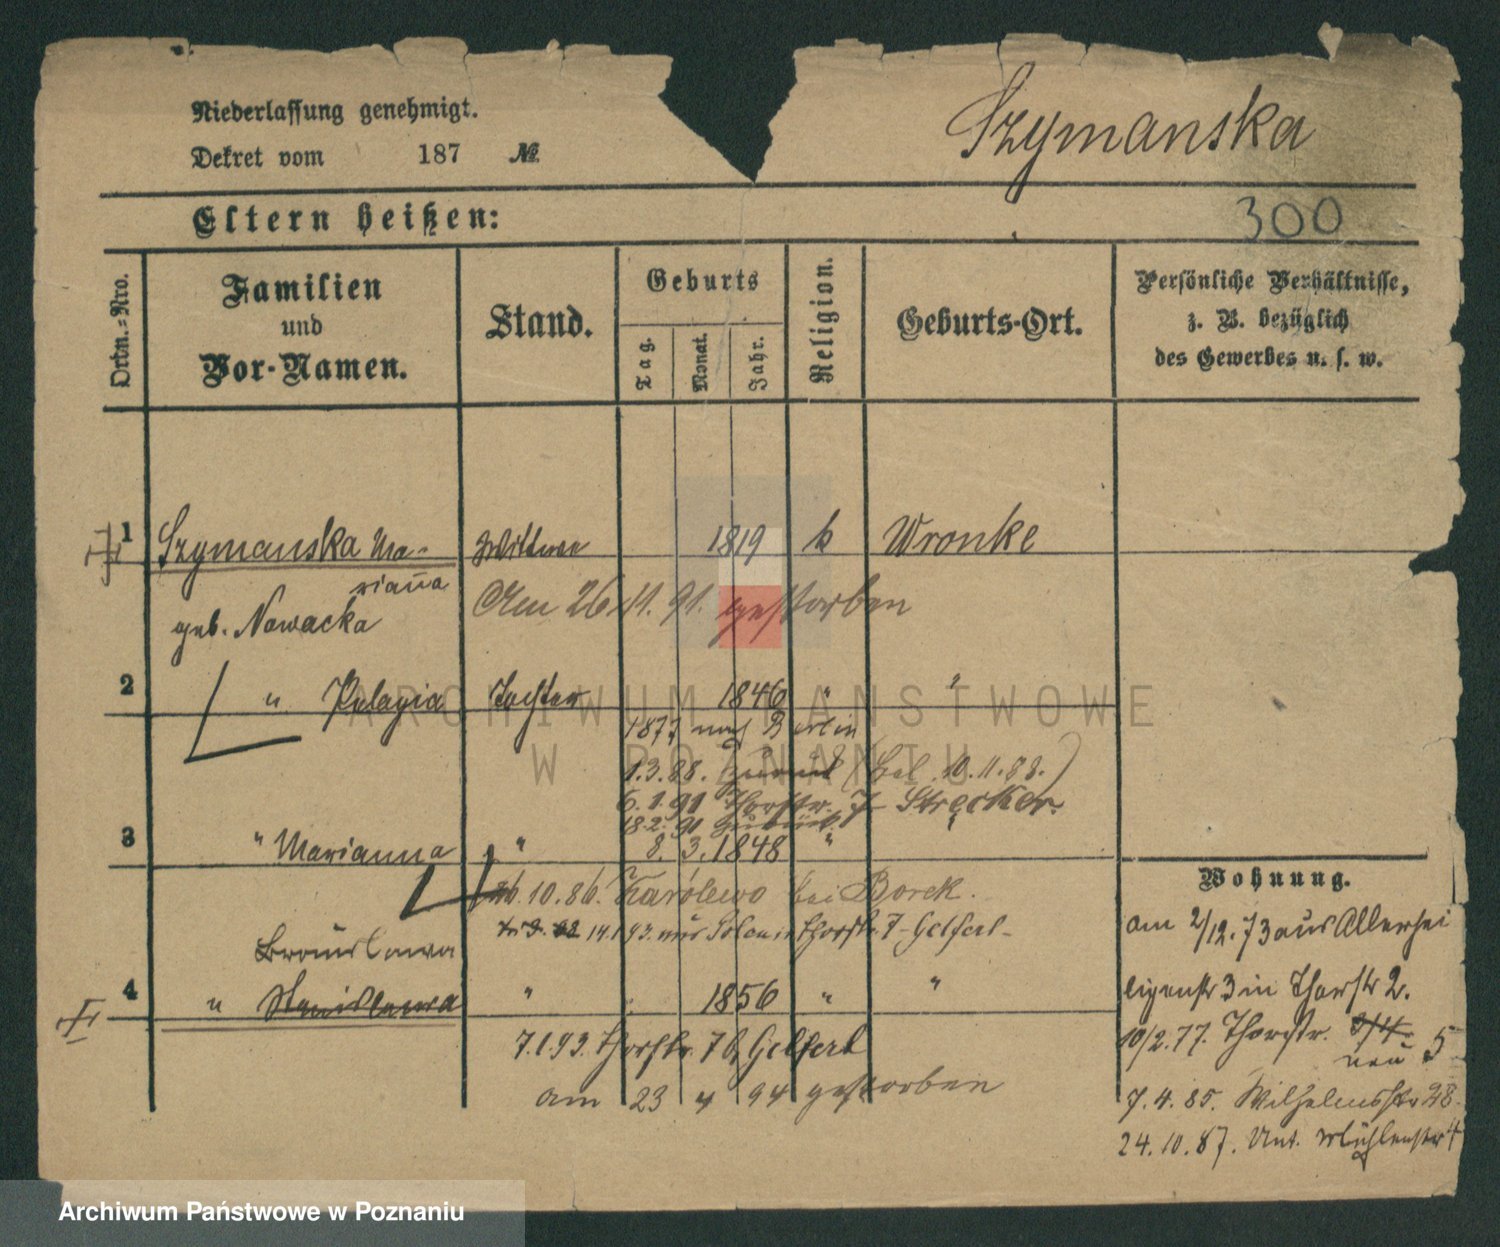 Niederlassung genehmigt.
Dekret vom 187 №
Szymanska
Eltern heißen:
300
Ordn.=Nro.
Familien
und
Vor-Namen.
Stand.
Geburts
Tag.
Monat.
Jahr.
Religion.
Geburts-Ort.
Persönliche Verhältnisse,
z. B. bezüglich
des Gewerbes u. s. w.
1 Szymanska Ma-
rianna
geb. Nowacka
Wittwe 1819 k Wronke
Am 26.11.91. gestorben
2 " Pelagia Tochter 1846 " "
1877 nach Berlin
1.3.88. zurück (Bel. 10.11.88.)
6.1.91 Thorstr. 7 Strecker.
18.2.91 zurück.
3 " Marianna " 8. 3. 1848 "
26.10.86. Karolewo bei Borek.
14.1.93. aus Thorstr. 7 - Gelfert -
Bronislawa
4 " Stanislawa " 1856 " "
7.1.93. Thorstr. 7 b, Gelfert
am 23 4 94 gestorben
Wohnung.
am 2/12.73 aus Allerhei
ligenstr 3 in Thorstr 2.
10/2.77. Thorstr. 3/4.
neu 5
7.4.85. Wilhelmsstr 28.
24.10.87. Unt. Mühlenstr 4
ARCHIWUM PAŃSTWOWE
W POZNANIU
Archiwum Państwowe w Poznaniu